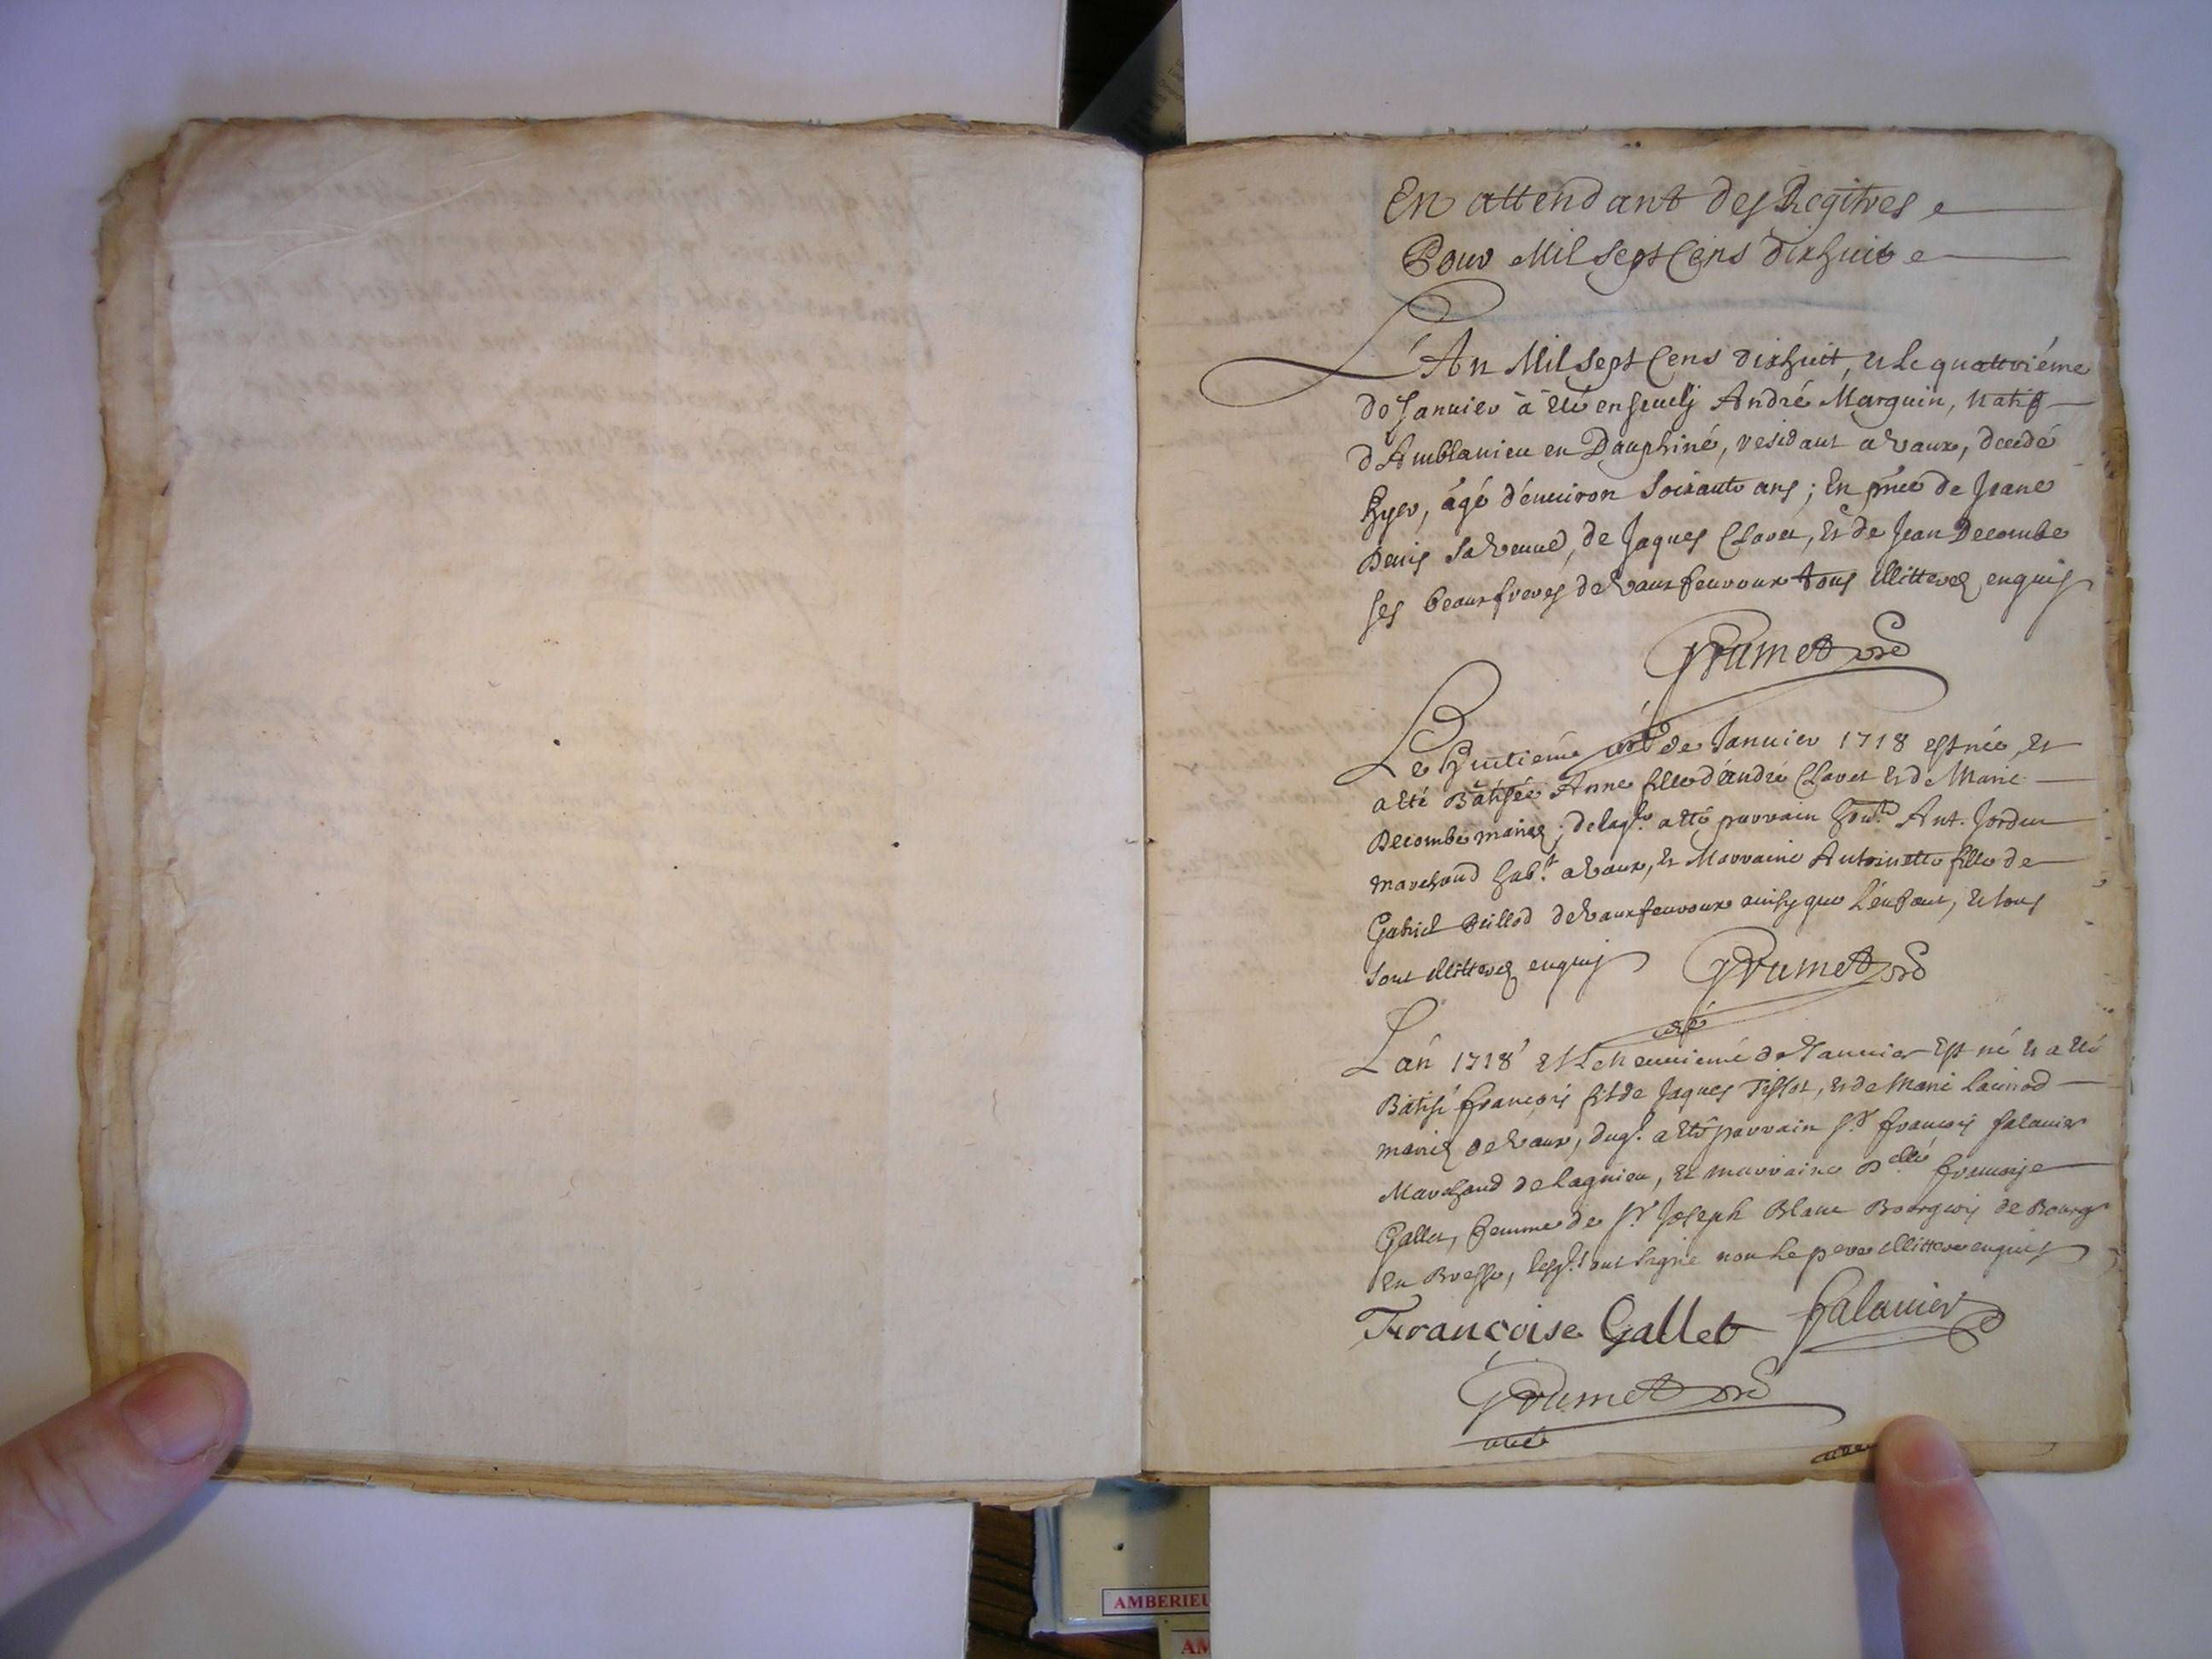 En attendant des Regîtres
Pour Mil sept Cens dixhuit
L'An Mil sept Cens dixhuit, et le quattriéme
de Januier à êté enseuely André Marguin, natif
d'Amblanieu en Dauphiné, residant a Vaux, decedé
hyer, âgé d'enuiron soixante ans; en pñce de Jeane
Denis sa Veuue, de Jaques Clavet, et de Jean Decombe
ses beaux freres de Vaux feuroux tous illitterez enquis
Grumet
curé
Le huitieme de Januier 1718 est née, et
a eté Bâtisée Anne fille d'andré Clavet et de Marie
Decombe mariez; de laqle a eté parrain hon. Ant. Jordan
marchand habt. a Vaux, et Marraine Antoinette fille de
Gabriel Buillod de Vaux feuroux ainsy que L'enfant, et tous
sont illitterez enquis Grumet
curé
L'an 1718 et le neuuiemé de Januier Est né et a eté
Bâtisé françois fils de Jaques Tissot, et de Marie
mariez de Vaux, duql. a eté parrain sr. françois falauier
Marchand de Lagnieu, et marraine Delle françoise
Gallet, femme de sr. Joseph Blanc Bourgeois de Bourg
En Bresse, lesqls. ont signé non le pere illittere enquis
Françoise Gallet falauier
Grumet
curé
AMBERIEU
AM